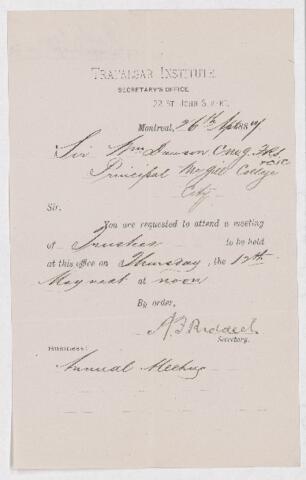 TRAFALGAR INSTITUTE.
SECRETARY'S OFFICE,
22 ST. JOHN STREET.
Montreal, 26th Apl 1887
Sir Wm Dawson CMG. FRS
Principal McGill College
City
Sir.
You are requested to attend a meeting
of Trustees to be held
at this office on Thursday, the 12th
May next at noon
By order,
A F Riddell
Secretary.
BUSINESS:
Annual Meeting